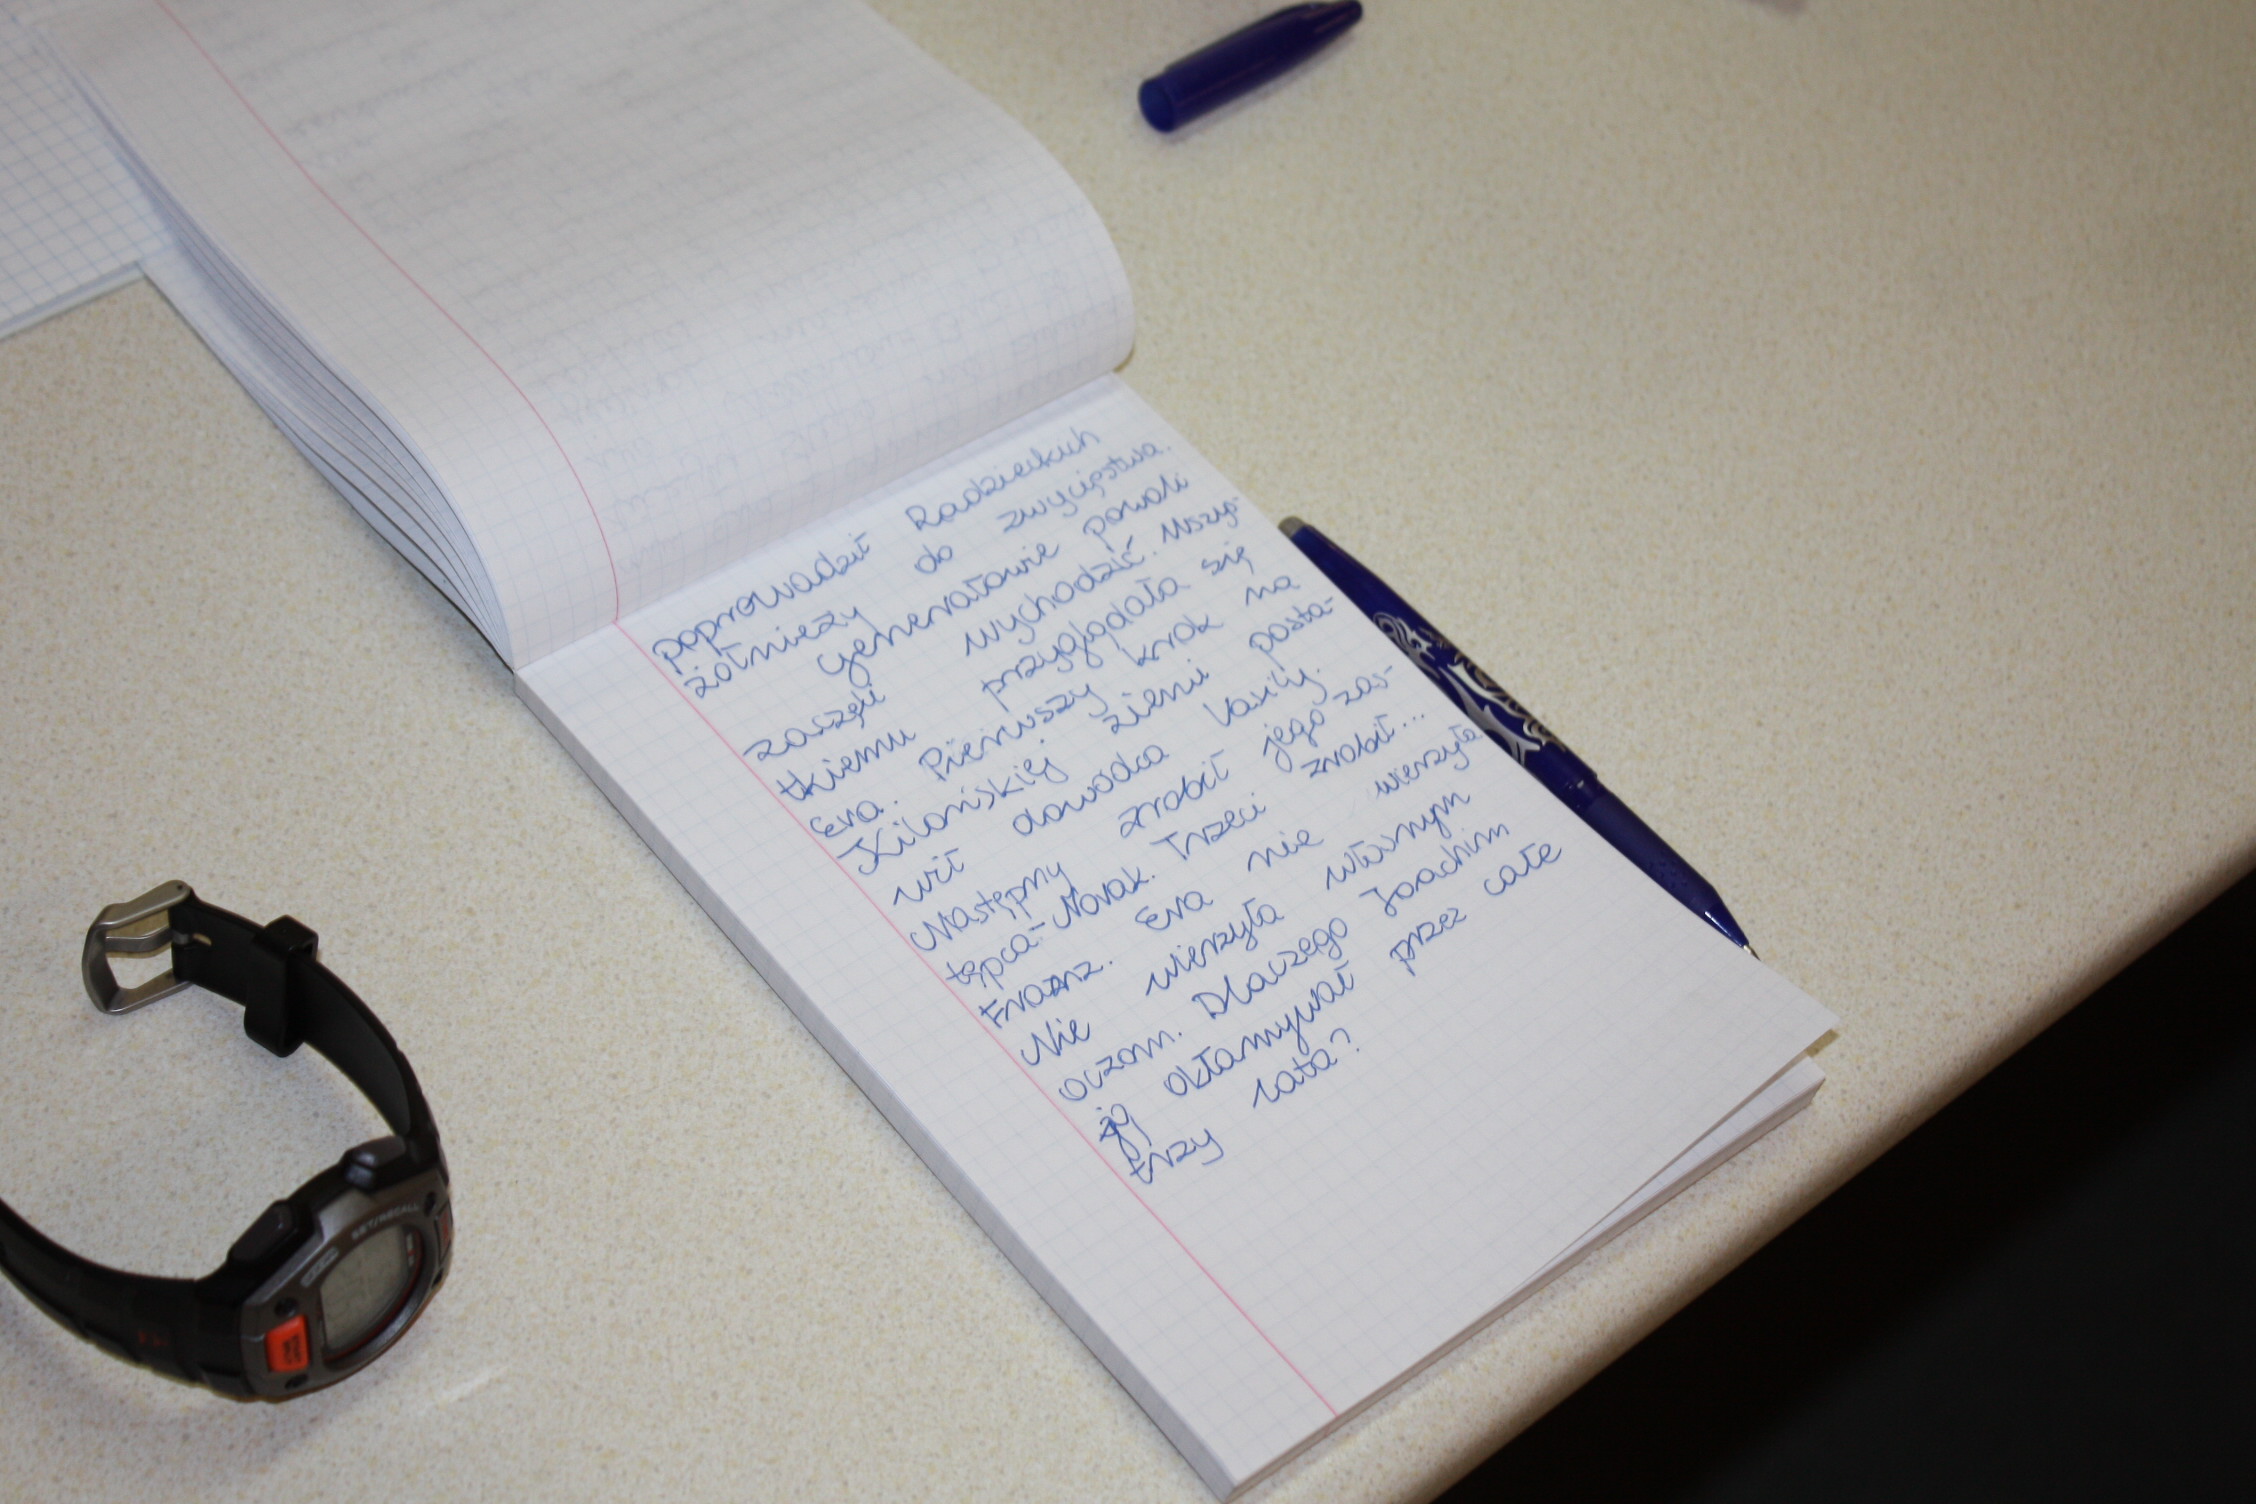 poprowadził Radzieckich
żołnieży do zwycięstwa.
Generałowie powoli
zaczęli wychodzić. Wszys-
tkiemu przyglądała się
Eva. Pierwszy krok na
Kilońskiej ziemi posta-
wił dowódca Vasily.
Następny zrobił jego zas-
tępca-Novak. Trzeci zrobił...
Franz. Eva nie wierzyła
Nie wierzyła własnym
oczom. Dlaczego Joachim
ją okłamywał przez całe
trzy lata?
SET/RECALL